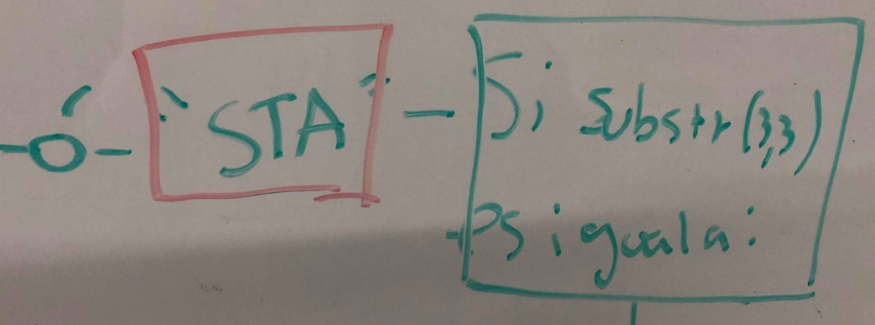 - Ó - "STA" - Si substr(3,3)
es igual a: